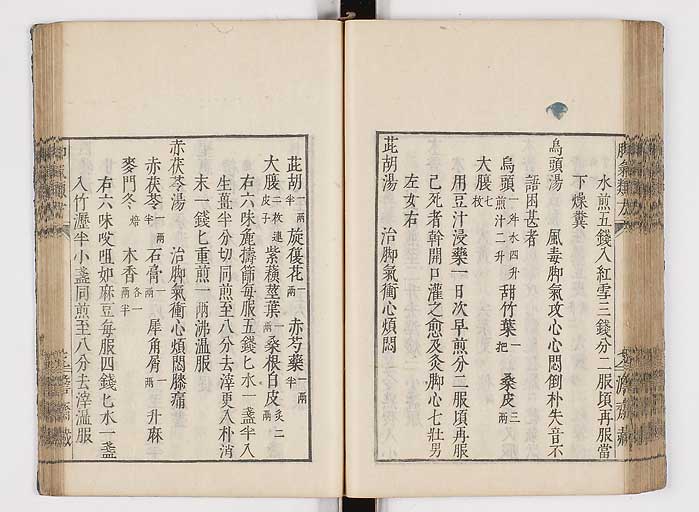 水煎五錢入紅雪三錢分二服頃再服當
下燥糞
烏頭湯 風毒脚氣攻心心悶倒朴失音不
語困甚者
烏頭 一升水四升煎汁二升 甜竹葉 一把 桑皮 三兩
大腹 七枚
用豆汁浸藥一日次早煎分二服頃再服
已死者幹開口灌之愈及灸脚心七壯男
左女右
茈胡湯 治脚氣衝心煩悶
茈胡 一兩半 旋覆花 一兩 赤芍藥 一兩半
大腹 二枚連皮子 紫蘇莖葉 一兩 桑根白皮 炙二兩
右六味麄擣篩每服五錢匕水一盞半入
生薑半分切同煎至八分去滓更入朴消
末一錢匕重煎一兩沸溫服
赤茯苓湯 治脚氣衝心煩悶膝痛
赤茯苓 一兩半 石膏 一兩 犀角屑 一兩 升麻
麥門冬 焙 木香 各一兩半
右六味㕮咀如麻豆每服四錢匕水一盞
入竹瀝半小盞同煎至八分去滓溫服